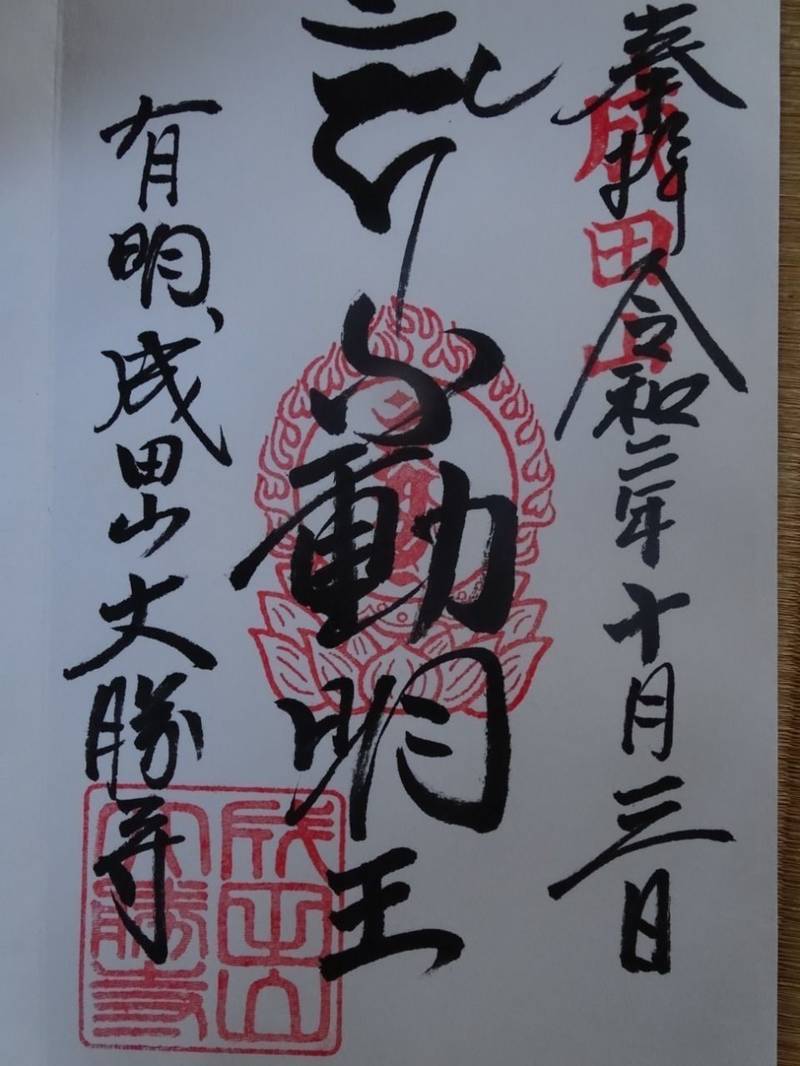 奉拝 令和二年十月三日
成田山
不動明王
有明、成田山大勝寺
成田山
大勝寺